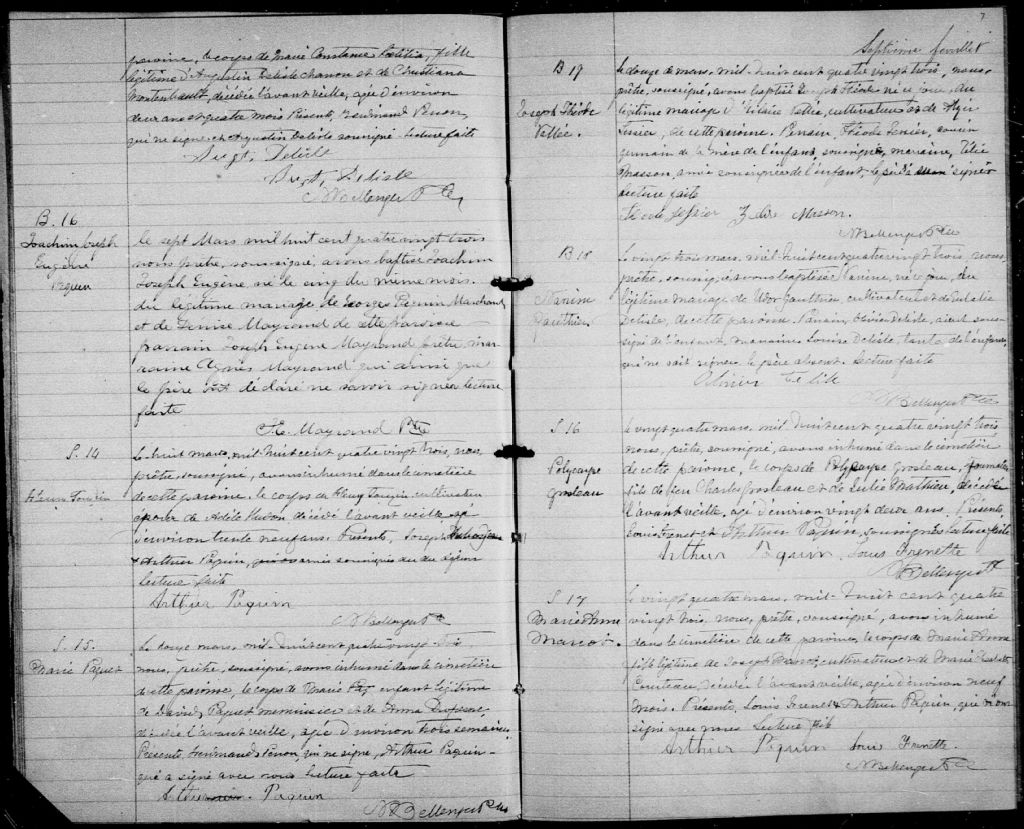 paroisse, le corps de Marie Constance Exélilia, fille
légitime d'Augustin Delisle Chanon et de Christiana
Montembault, décédée l'avant veille, agée d'environ
deux ans et quatre mois Présents, Ferdinand Perron,
qui ne signe et Augustin Delisle soussigné Lecture faite
Augt, Delisle
Augt, Delisle
N Bellenger Ptre
B. 16
Joachim Joseph
Eugène
Paquin
Le sept Mars mil huit cent quatre vingt trois
nous prêtre, soussigné, avons baptisé Joachim
Joseph Eugène né le cinq du même mois.
du légitime mariage de Georges Paquin Marchand
et de Denise Mayrand de cette paroisse
parrain Joseph Eugène Mayrand prêtre, mar-
raine Agnès Mayrand qui ainsi que
le père ont déclaré ne savoir signer lecture
faite
J. E. Mayrand Ptre
S. 14
Le huit mars, mil huit cent quatre vingt trois, nous,
prêtre, soussigné, avons inhumé dans le cimetière
de cette paroisse, le corps de cultivateur
époux de Adèle décédé l'avant veille agé
d'environ trente neuf ans. Présents, Joseph
& Arthur Paquin, soussignés du défunt
Lecture faite
Arthur Paquin
N Bellenger Ptre
S. 15.
Marie Paquet
Le douze mars, mil huit cent quatre vingt trois
nous, prêtre, soussigné, avons inhumé dans le cimetière
de cette paroisse, le corps de Marie enfant légitime
de David Paquet menuisier et de Anna
décédée l'avant veille, agée d'environ trois semaines
Présents, Ferdinand Perron, qui ne signe, Arthur Paquin
qui a signé avec nous lecture faite
Arthur Paquin
N Bellenger Ptre
7
Septième feuillet
B 17
Joseph Théode
Vallée.
Le douze de mars, mil huit cent quatre vingt trois, nous,
prêtre, soussigné, avons baptisé Joseph Théode né ce jour, du
légitime mariage d'Hilaire Vallée, cultivateur et de
Tessier, de cette paroisse. Parrain, Théode Tessier, cousin
germain de la mère de l'enfant, soussigné, marraine, Zélie
Masson, amie soussignée de l'enfant, le père a signé
lecture faite
Théode Tessier Zélie Masson.
N Bellenger Ptre
B 18
Gauthier
Le vingt trois mars, mil huit cent quatre vingt trois, nous,
prêtre, soussigné, avons baptisé née ce jour, du
légitime mariage de Gauthier, cultivateur et de
Delisle, de cette paroisse. Parrain, Olivier Delisle, aieul sous-
signé de l'enfant, marraine Louise Delisle, tante de l'enfant,
qui ne sait signer le père absent. Lecture faite
Olivier Delisle
N Bellenger Ptre
S. 16
Polycarpe
Grosleau
Le vingt quatre mars, mil huit cent quatre vingt trois
nous, prêtre, soussigné, avons inhumé dans le cimetière
de cette paroisse, le corps de Polycarpe Grosleau, journalier
fils de feu Charles Grosleau et de Julie Mathieu, décédé
l'avant veille, agé d'environ vingt deux ans, Présents,
Louis Frenet et Arthur Paquin, soussignés lecture faite
Arthur Paquin Louis Frenette
N Bellenger Ptre
S 17
Marie Anne
Marcot.
Le vingt quatre mars, mil huit cent quatre
vingt trois, nous, prêtre, soussigné, avons inhumé
dans le cimetière de cette paroisse, le corps de Marie Anne
fille légitime de Joseph Marcot, cultivateur et de Marie
Courteau, décédée l'avant veille, agée d'environ neuf
mois. Présents, Louis Frenet & Arthur Paquin, qui ont
signé avec nous Lecture faite
Arthur Paquin Louis Frenette.
N Bellenger Ptre